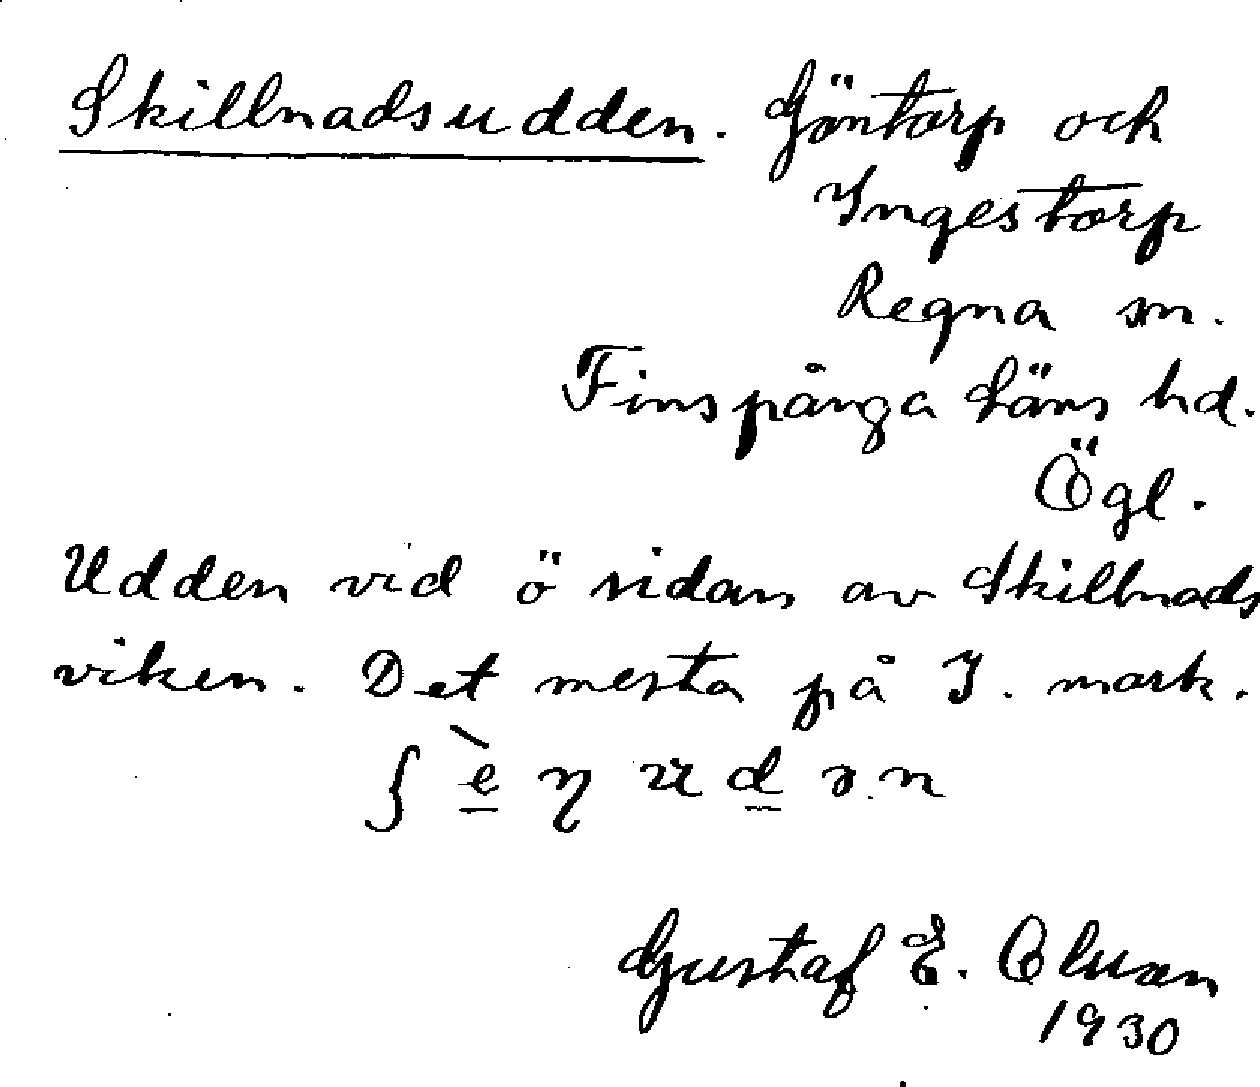 Skillnadsudden. Göntorp och
Ingestorp
Regna sn.
Finspånga läns hd.
Ögl.
Udden vid ö sidan av Skillnads
viken. Det mesta på I. mark.
ʃ è̱ ŋ u d̳ ə n
Gustaf E. Olsson
1930